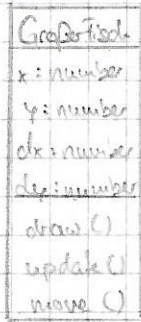 Großer Fisch
x: number
y: number
dx: number
dy: number
draw ()
update ()
move ()